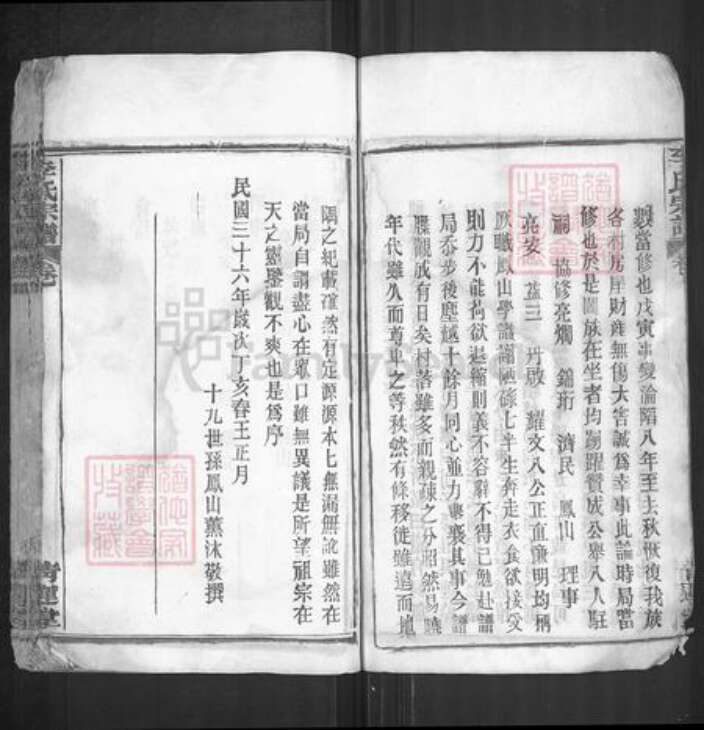 數當修也戊寅事變淪陷八年至去秋恢復我族
各村房屋財產無傷大害誠為幸事此論時局當
修也於是闔族在坐者均踴躍贊成公舉八人駐
嗣 協修亮燗 錦珩 濟民 鳳山 理事
亮安 益三 丹啟 耀文八公正直廉明均稱
厥職鳳山學識謭陋碌碌七半生奔走衣食欲接受
則力不能尚欲退縮則義不容辭不得已勉赴譜
局忝步後塵越十餘月同心並力襄其事今譜
牒觀成有日矣村落雖多而親疎之分昭然易曉
年代雖久而尊卑之等秩然有條移徙雖遠而地
隅之紀載確然有定源源本七無漏無訛雖然在
當局自謂盡心在眾口雖無異議是所望祖宗在
天之靈鑒觀不爽也是為序
民國三十六年歲次丁亥春王正月
十九世孫鳳山薰沐敬撰
李氏宗譜 卷
青蓮堂